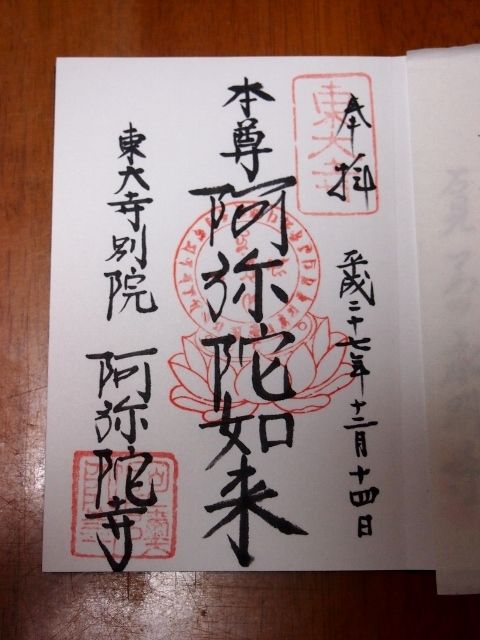 奉拝
東大寺
平成二十七年十二月十四日
本尊 阿弥陀如来
東大寺別院 阿弥陀寺